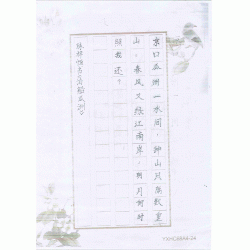 京口瓜洲一水间，钟山只隔数重
山。春风又绿江南岸，明月何时
照我还？
船瓜洲。